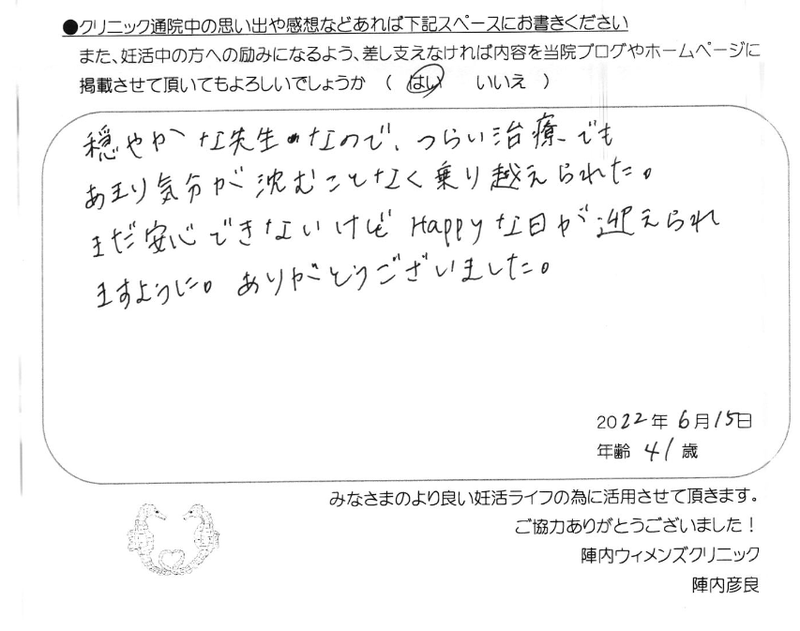 ●クリニック通院中の思い出や感想などあれば下記スペースにお書きください
また、妊活中の方への励みになるよう、差し支えなければ内容を当院ブログやホームページに
掲載させて頂いてもよろしいでしょうか ( はい いいえ )
穏やかな先生なので、つらい治療でも
あまり気分が沈むことなく乗り越えられた。
まだ安心できないけどHappyな日が迎えられ
ますように。ありがとうございました。
2022年6月15日
年齢 41歳
みなさまのより良い妊活ライフの為に活用させて頂きます。
ご協力ありがとうございました！
陣内ウィメンズクリニック
陣内彦良